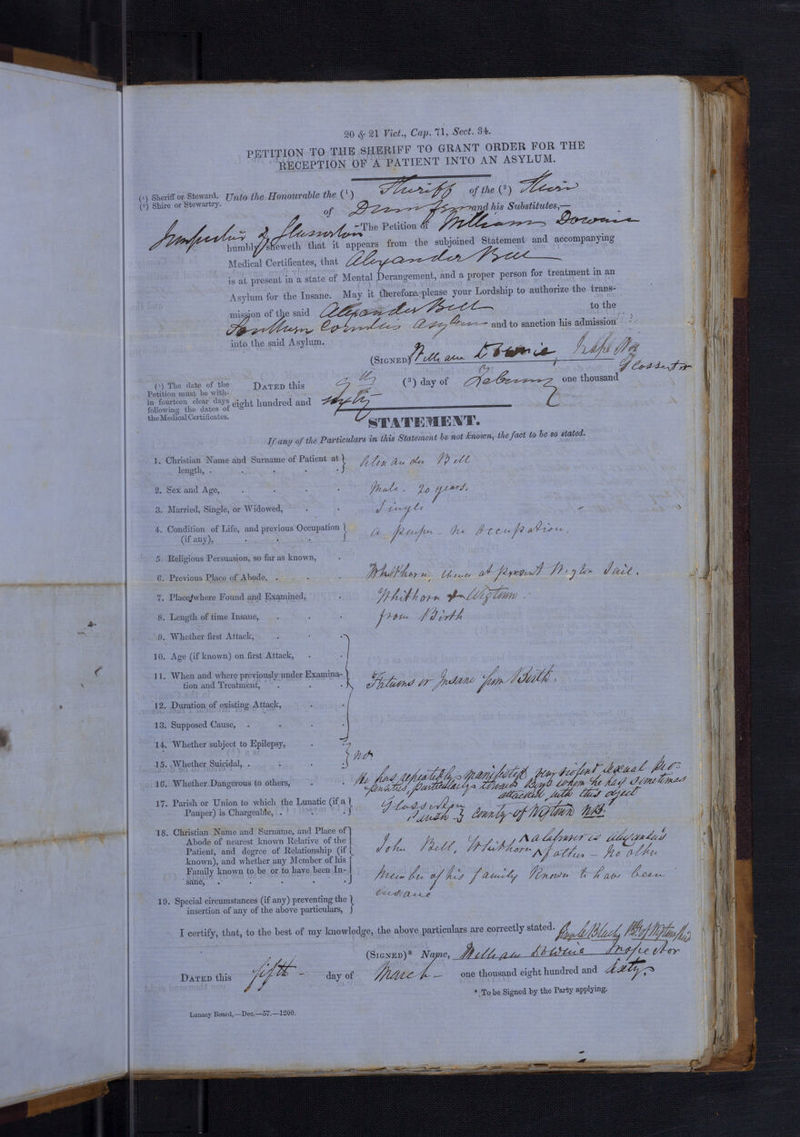 20 & 21 Vict., Cap. 71, Sect. 34.
PETITION TO THE SHERIFF TO GRANT ORDER FOR THE
RECEPTION OF A PATIENT INTO AN ASYLUM.
(¹) Sheriff or Steward.
(²) Shire or Stewartry.
Unto the Honourable the (¹) Sheriff of the (²) Shire
of Dumfries and his Substitutes,—
The Petition of William Downie
Inspector of Glasserton
humbly sheweth that it appears from the subjoined Statement and accompanying
Medical Certificates, that Alexander Bell
is at present in a state of Mental Derangement, and a proper person for treatment in an
Asylum for the Insane. May it therefore please your Lordship to authorize the trans-
mission of the said Alexander Bell to the
Southern Counties Asylum and to sanction his admission
into the said Asylum.
(SIGNED) William Downie, Inspector
Glasserton
(³) The date of the
Petition must be with-
in fourteen clear days
following the dates of
the Medical Certificates.
DATED this (³) day of one thousand
eight hundred and sixty
STATEMENT.
If any of the Particulars in this Statement be not known, the fact to be so stated.
1. Christian Name and Surname of Patient at length, . Alexander Bell
2. Sex and Age, Male - 20 years.
3. Married, Single, or Widowed, Single
4. Condition of Life, and previous Occupation (if any), a pauper - no occupation.
5. Religious Persuasion, so far as known,
6. Previous Place of Abode, . Whithorn, at present Jail.
7. Place where Found and Examined, Whithorn & Wigtown
8. Length of time Insane, from Birth
9. Whether first Attack,
10. Age (if known) on first Attack,
11. When and where previously under Examina-
tion and Treatment, Fatuous or Insane from Birth.
12. Duration of existing Attack,
13. Supposed Cause,
14. Whether subject to Epilepsy,
15. Whether Suicidal, no
16. Whether Dangerous to others, He has repeatedly manifested very violent sexual
particularly towards Boys whom he has sometimes
attacked with this object
17. Parish or Union to which the Lunatic (if a
Pauper) is Chargeable, Glasserton
Parish & County of Wigtown
18. Christian Name and Surname, and Place of
Abode of nearest known Relative of the
Patient, and degree of Relationship (if
known), and whether any Member of his
Family known to be or to have been In-
sane, John Bell, Whithorn a labourer is Alexander's
father - no other
member of his family known to have been
insane
19. Special circumstances (if any) preventing the
insertion of any of the above particulars,
I certify, that, to the best of my knowledge, the above particulars are correctly stated.
(SIGNED)* Name, William Downie Inspector
DATED this fifth day of March one thousand eight hundred and sixty
* To be Signed by the Party applying.
Lunacy Board,—Dec.—57.—1200.